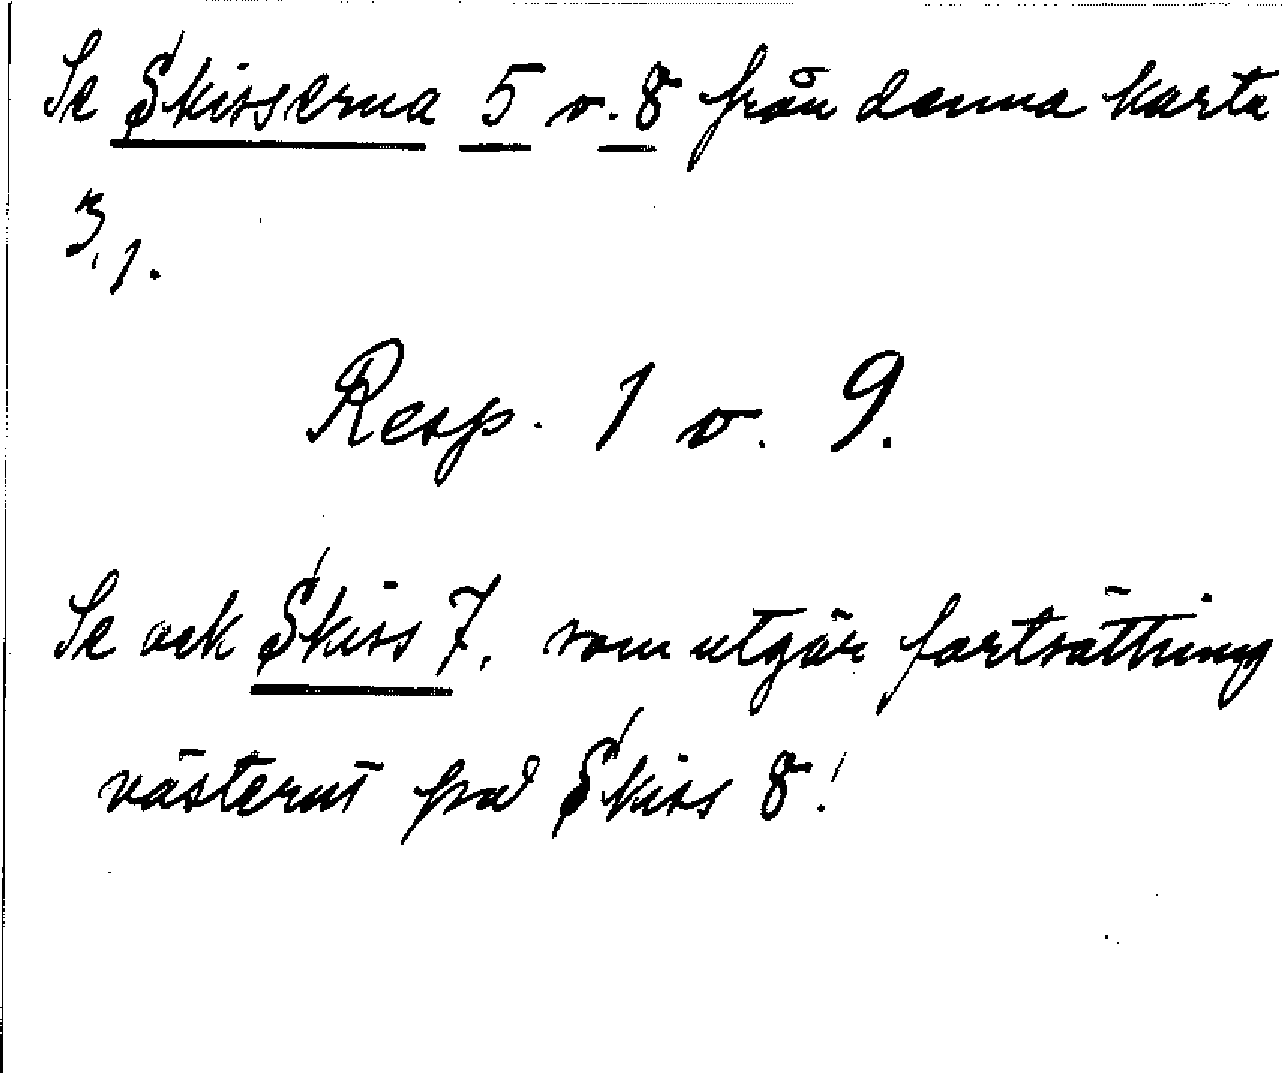 Se Skisserna 5 o. 8 från denna karta
3,1.
Resp. 1 o. 9.
Se ock Skiss 7, som utgör fortsättning
västerut på Skiss 8!